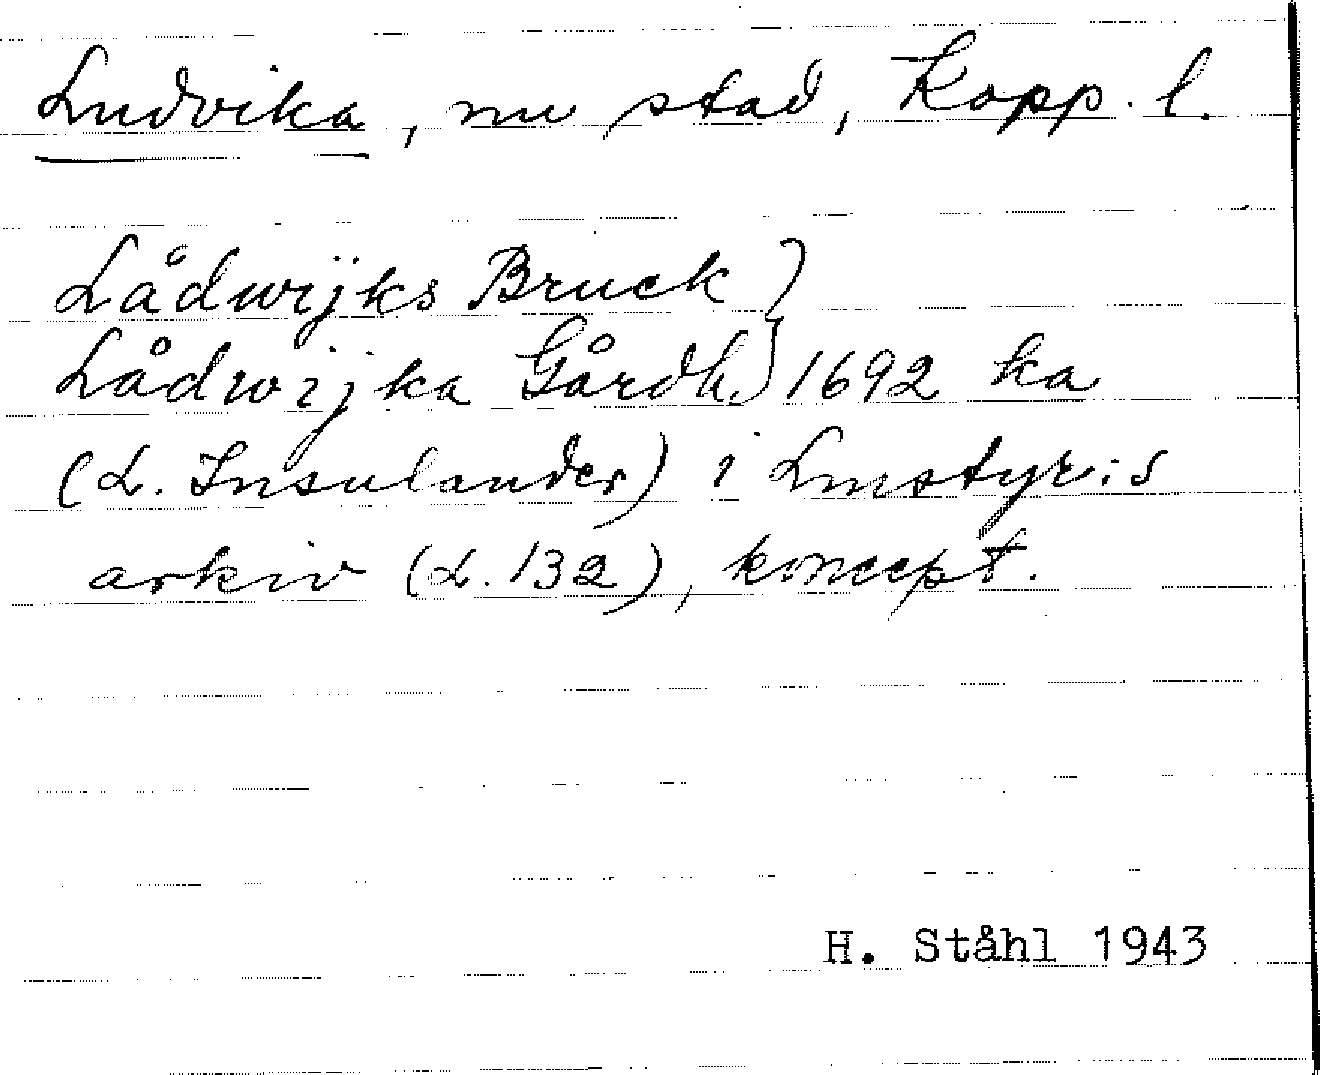 Ludvika, nu stad, Kopp. l.
Lådwijks Bruck }
Lådwijka Gårdh. } 1692 ka
(L. Insulander) i Lmstyr:s
arkiv (L. 132), koncept.
H. Ståhl 1943